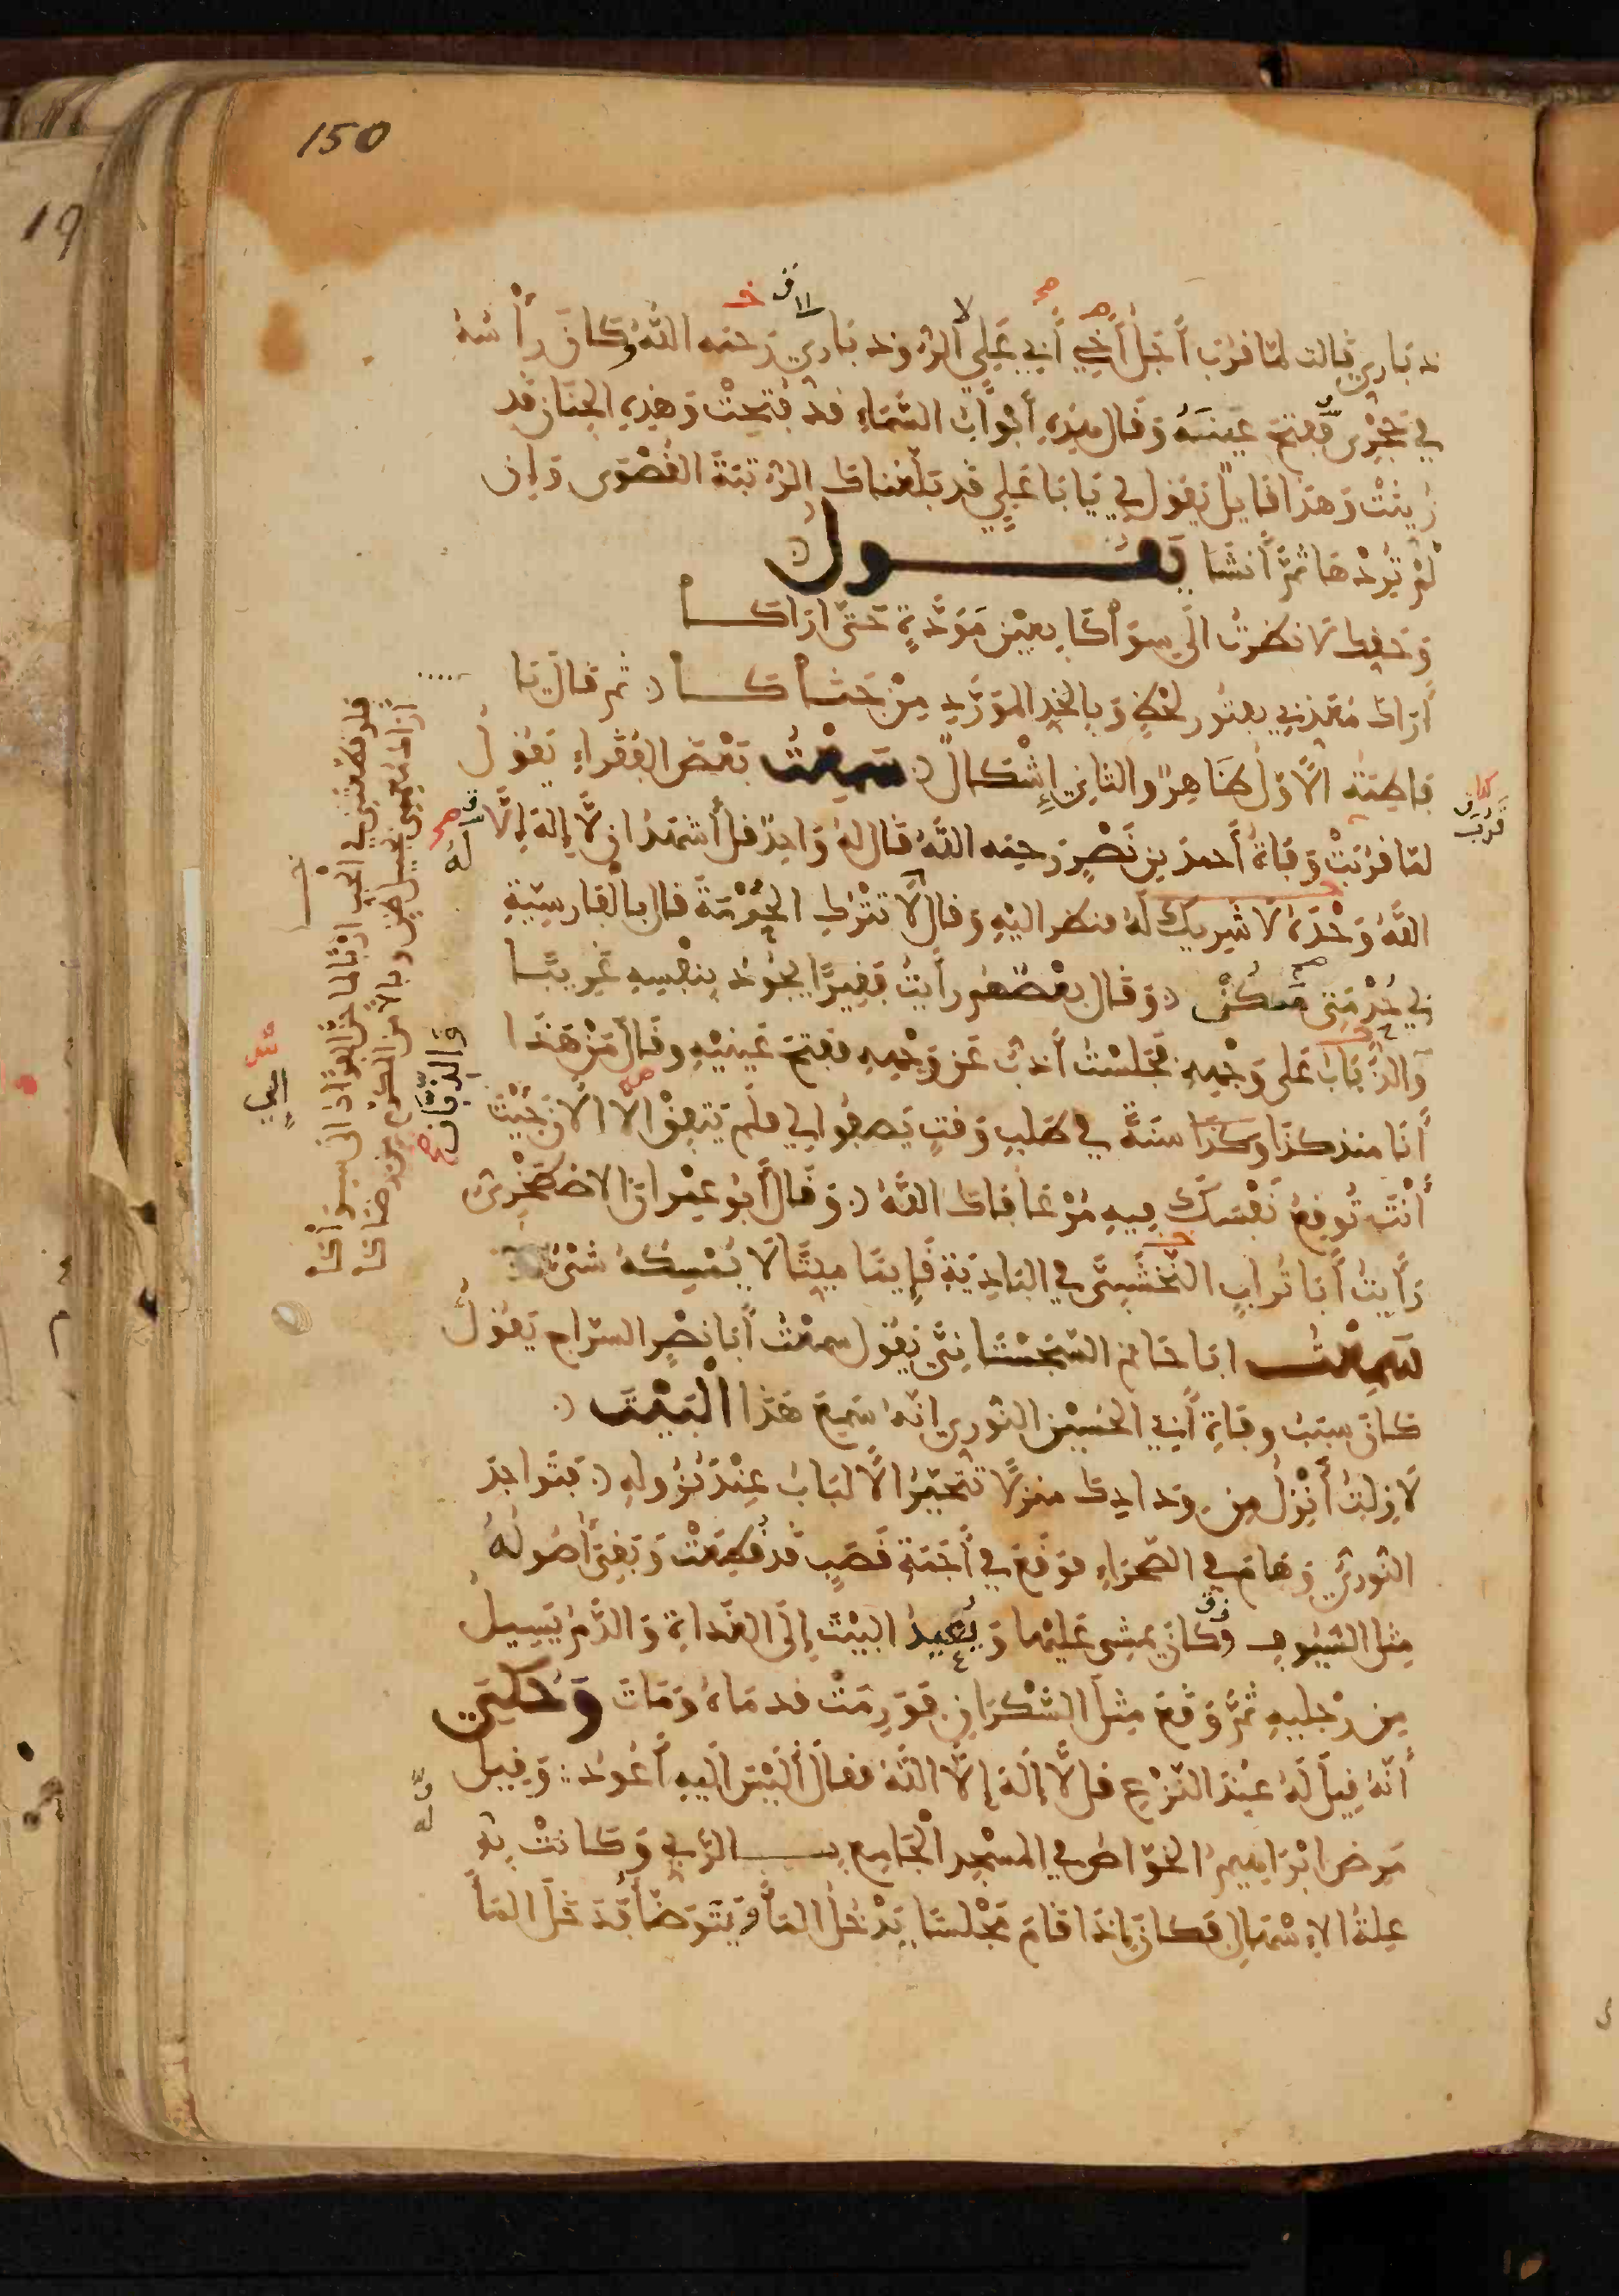 150
19
ذباري قالت لما قرب أجل أخي أبي علي الروذباري رحمه الله وكان رأسه
في حجري ففتح عينيه وقال هذه أبواب السماء قد فتحت وهذه الجنان قد
زينت وهذا قايل يقول لي يا با علي قد بلغناك الرتبة القصوى وإن
لم تردها ثم أنشا يقول
وحقك لا نظرت الى سواكا بعين مودة حتى اراكا
أراك معذبي بفتور لحظ وبالخد المورد من جناكا ثم قال يا
فاطمة الأول ظاهر والثاني إشكال سمعت بعض الفقراء يقول
لما قربت وفاة أحمد بن نصر رحمه الله قال له واحد قل أشهد ان لا إله إلا
الله وحده لا شريك له فنظر اليه وقال لا تترك الحرمة قال بالفارسية
بي حرمتي مكن وقال بعضهم رأيت فقيرا يجود بنفسه غريبا
والذباب على وجهه فجلست أذب عن وجهه ففتح عينيه وقال من هذا
أنا منذ كذا وكذا سنة في طلب وقت يصفوا لي فلم يتفق الا الان جيت
أنت توقع نفسك فيه مر عافاك الله وقال أبو عمران الاصطخري
رأيت أبا تراب النخشبي في البادية قايما ميتا لا يمسكه شئ
سمعت ابا حاتم السجستاني يقول سمعت أبا نصر السراج يقول
كان سبب وفاة أبي الحسين النوري انه سمع هذا البيت
لا زلت أنزل من ودادك منزلا تتحير الألباب عند نزوله فتواجد
النوري وهام في الصحراء فوقع في أجمة قصب قد قطعت وبقي أصوله
مثل السيوف وكان يمشي عليها ويعيد البيت إلى الغداة والدم يسيل
من رجليه ثم وقع مثل السكران فورمت قدماه ومات وحكي
أنه قيل له عند النزع قل لا إله إلا الله فقال أليس اليه أعود وقيل
مرض ابراهيم الخواص في المسجد الجامع بالري وكانت به
علة الاسهال فكان إذا قام مجلسا يدخل الما ويتوضأ فدخل الما
قربت
له
والذبان
الي
فلو قطعتني في الحب اربا لما حن الفؤاد الى سواكا